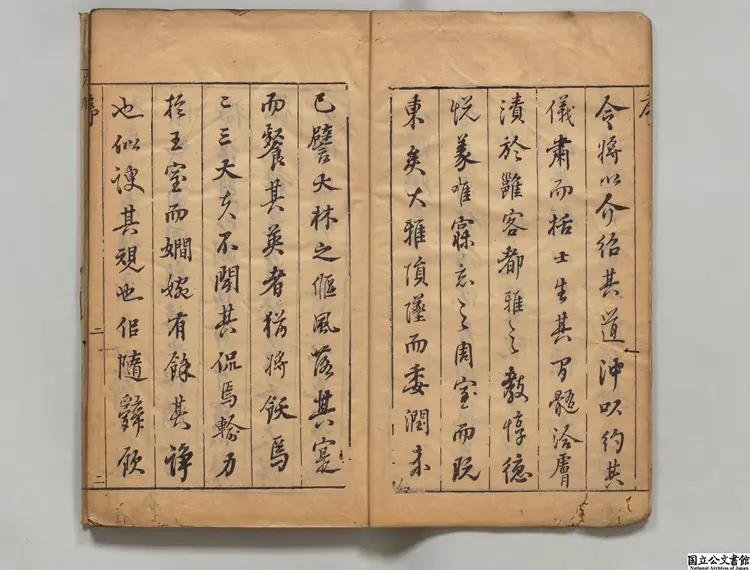 令將以介紹其道沖以約其
儀肅而括士生其間髓洽膚
漬於雖容都雅之教惇德
悦義唯寐忘之周室而既
東矣大雅傾墜而委潤未
已譬大林之偃風落其寔
而餐其英者猶將飫焉
二三大夫不閑其侃焉輸力
於王室而嫺婉有餘其諍
也似諛其視也似隨辭飲
序
二
国立公文書館
National Archives of Japan